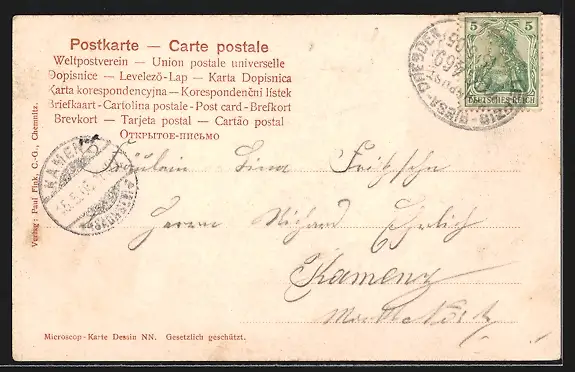 Postkarte — Carte postale
Weltpostverein — Union postale universelle
Dopisnice — Levelező-Lap — Karta Dopisnica
Karta korespondencyjna — Korespondenční lístek
Briefkaart - Cartolina postale - Post card - Brefkort
Brevkort — Tarjeta postal — Cartão postal
ОТКРЫТОЕ-ПИСЬМО
5 5
DEUTSCHES REICH
RIESA-DRESDEN
KAMENZ
(SACHSEN)
Fräulein Lina Fritzsche
Herrn Richard Ehrlich
Kamenz
Verlag: Paul Fink, C.-G., Chemnitz.
Microscop-Karte Dessin NN. Gesetzlich geschützt.